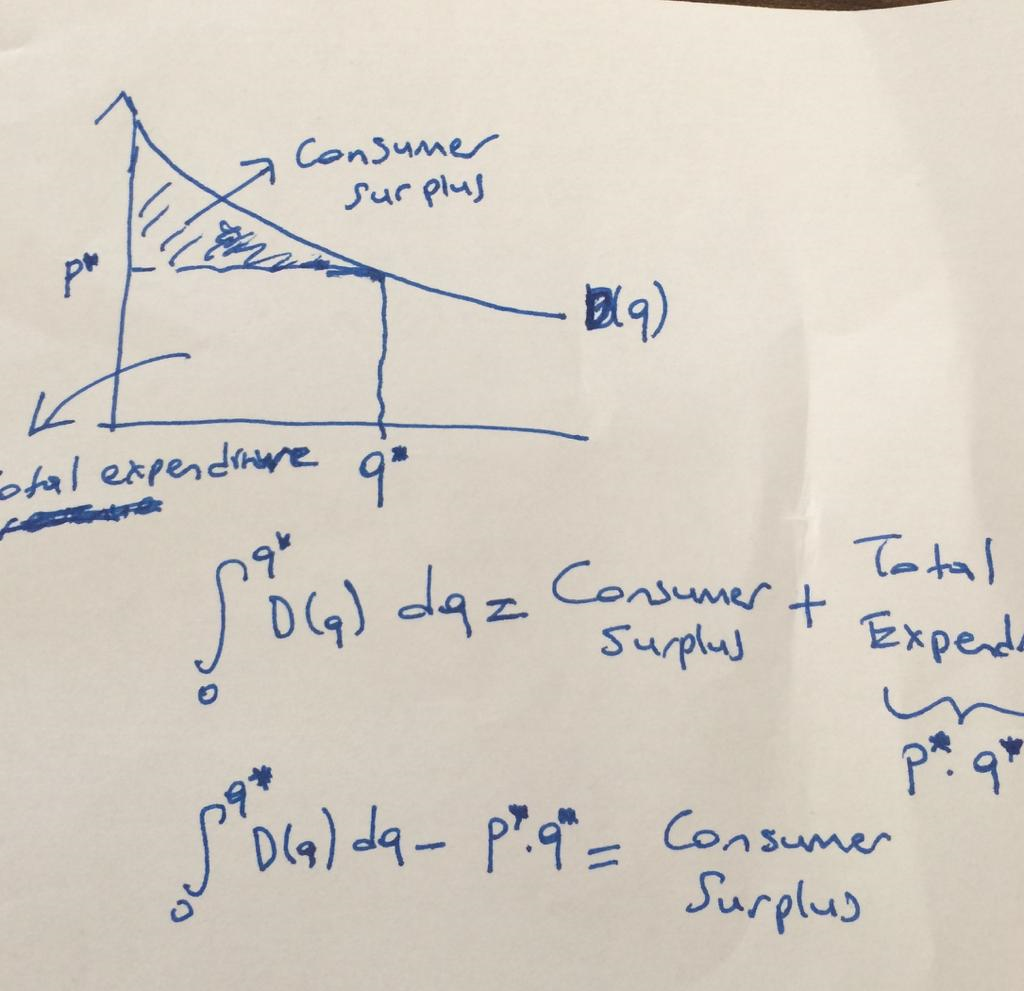 Consumer
surplus
P*
D(q)
otal expenditure
q*
∫₀^q* D(q) dq = Consumer Surplus + Total Expend
P*. q*
∫₀^q* D(q) dq - P*.q* = Consumer
Surplus